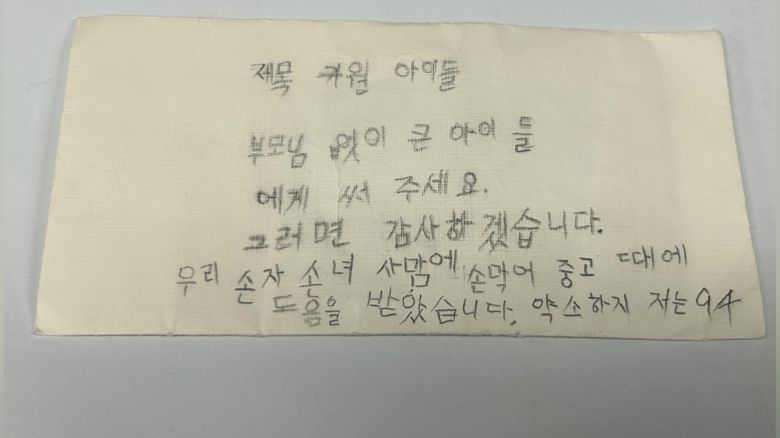 제목 귀원 아이들
부모님 없이 큰 아이들
에게 써 주세요.
그러면 감사하겠습니다.
우리 손자 손녀 사맘에 손막어 중고 때에
도음을 받았습니다. 약소하지 저는 94